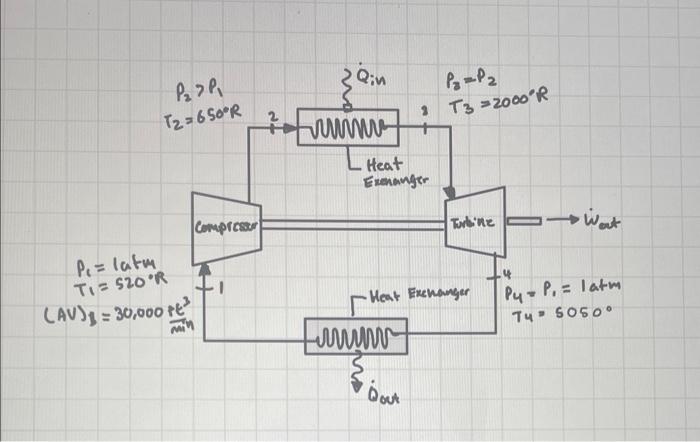 P₂ > P₁
T₂ = 650°R
2
Q̇in
P₃ = P₂
T₃ = 2000°R
3
Heat
Exchanger
Compressor
Turbine
Ẇout
P₁ = 1atm
T₁ = 520°R
(AV)₁ = 30,000 ft³/min
1
Heat Exchanger
4
P₄ = P₁ = 1atm
T₄ = 5050°
Q̇out